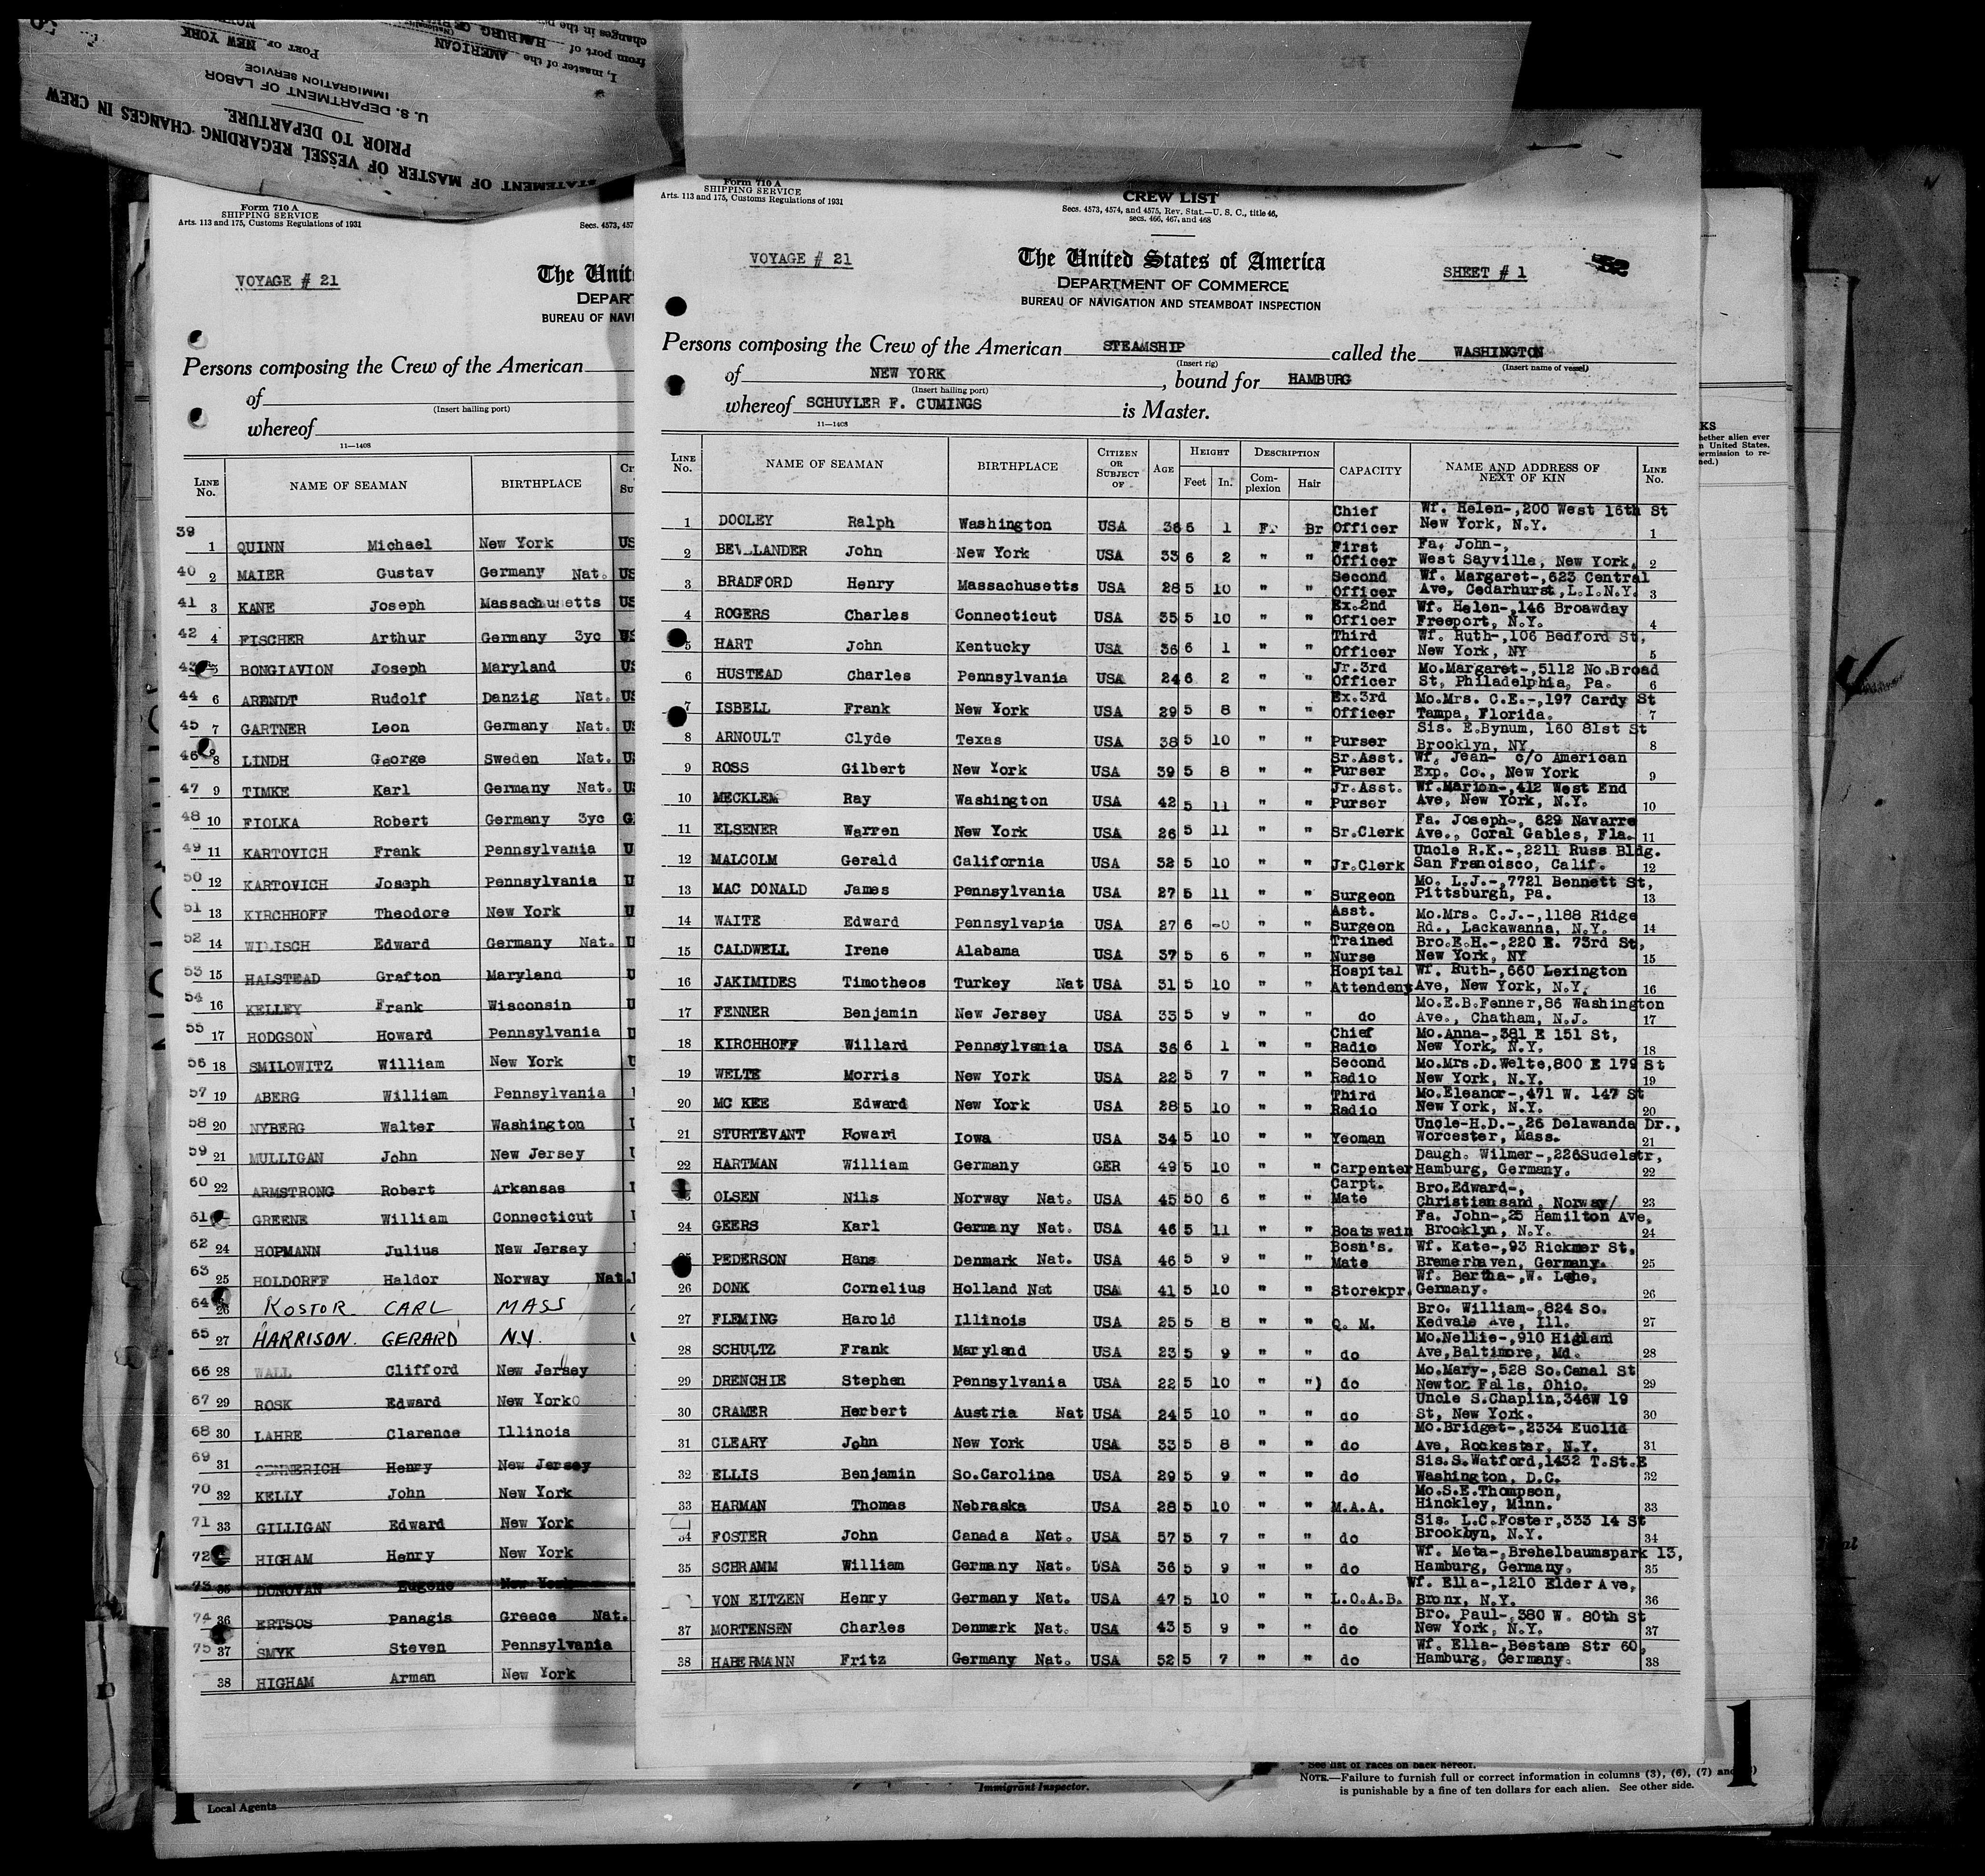 STATEMENT OF MASTER OF VESSEL REGARDING CHANGES IN CREW
PRIOR TO DEPARTURE.
U. S. DEPARTMENT OF LABOR
IMMIGRATION SERVICE
PORT OF NEW YORK
I, master of the AMERICAN
from port of HAMBURG
changes in the
Form 710 A
SHIPPING SERVICE
Arts. 113 and 175, Customs Regulations of 1931
Secs. 4573, 457
VOYAGE # 21
The Unit
DEPAR
BUREAU OF NAVI
Persons composing the Crew of the American
of
(Insert hailing port)
whereof
11—1408
LINE No. NAME OF SEAMAN BIRTHPLACE
39 1 QUINN Michael New York US
40 2 MAIER Gustav Germany Nat. US
41 3 KANE Joseph Massachusetts US
42 4 FISCHER Arthur Germany 3yc US
43 5 BONGIAVION Joseph Maryland US
44 6 ARENDT Rudolf Danzig Nat. US
45 7 GARTNER Leon Germany Nat. US
46 8 LINDH George Sweden Nat. US
47 9 TIMKE Karl Germany Nat. U
48 10 FIOLKA Robert Germany 3yc G
49 11 KARTOVICH Frank Pennsylvania U
50 12 KARTOVICH Joseph Pennsylvania U
51 13 KIRCHHOFF Theodore New York U
52 14 WILISCH Edward Germany Nat. U
53 15 HALSTEAD Grafton Maryland U
54 16 KELLEY Frank Wisconsin U
55 17 HODGSON Howard Pennsylvania U
56 18 SMILOWITZ William New York U
57 19 ABERG William Pennsylvania
58 20 NYBERG Walter Washington
59 21 MULLIGAN John New Jersey
60 22 ARMSTRONG Robert Arkansas
61 GREENE William Connecticut
62 24 HOPMANN Julius New Jersey
63 25 HOLDORFF Haldor Norway Nat.
64 26 KOSTOR CARL MASS
65 27 HARRISON. GERARD N.Y.
66 28 WALL Clifford New Jersey
67 29 ROSK Edward New York
68 30 LAHRE Clarence Illinois
69 31 GENNERICH Henry New Jersey
70 32 KELLY John New York
71 33 GILLIGAN Edward New York
72 HIGHAM Henry New York
73 35 DONOVAN Eugene New York
74 36 ERTSOS Panagis Greece Nat.
75 37 SMYK Steven Pennsylvania
38 HIGHAM Arman New York
Local Agents
Form 710 A
SHIPPING SERVICE
Arts. 113 and 175, Customs Regulations of 1931
CREW LIST
Secs. 4573, 4574, and 4575, Rev. Stat.—U. S. C., title 46,
secs. 466, 467, and 468
VOYAGE # 21
The United States of America
DEPARTMENT OF COMMERCE
BUREAU OF NAVIGATION AND STEAMBOAT INSPECTION
SHEET # 1
Persons composing the Crew of the American STEAMSHIP called the WASHINGTON
(Insert rig) (Insert name of vessel)
of NEW YORK, bound for HAMBURG
(Insert hailing port)
whereof SCHUYLER F. CUMINGS is Master.
11—1408
LINE No. NAME OF SEAMAN BIRTHPLACE CITIZEN OR SUBJECT OF AGE HEIGHT Feet In. DESCRIPTION Complexion Hair CAPACITY NAME AND ADDRESS OF NEXT OF KIN LINE No.
1 DOOLEY Ralph Washington USA 36 6 1 F. Br Chief Officer Wf. Helen-,200 West 16th St New York, N.Y. 1
2 John New York USA 33 6 2 " " First Officer Fa. John-, West Sayville, New York, 2
3 BRADFORD Henry Massachusetts USA 28 5 10 " " Second Officer Wf. Margaret-,623 Central Ave, Cedarhurst,L.I.N.Y. 3
4 ROGERS Charles Connecticut USA 35 5 10 " " Ex.2nd Officer Wf. Helen-,146 Broawday Freeport, N.Y. 4
5 HART John Kentucky USA 36 6 1 " " Third Officer Wf. Ruth-,106 Bedford St, New York, NY 5
6 HUSTEAD Charles Pennsylvania USA 24 6 2 " " Jr.3rd Officer Mo.Margaret-,5112 No.Broad St, Philadelphia, Pa. 6
7 ISBELL Frank New York USA 29 5 8 " " Ex.3rd Officer Mo.Mrs. C.E.-,197 Cardy St Tampa, Florida. 7
8 ARNOULT Clyde Texas USA 38 5 10 " " Purser Sis. E.Bynum, 160 81st St Brooklyn, NY, 8
9 ROSS Gilbert New York USA 39 5 8 " " Sr.Asst. Purser Wf, Jean- c/o American Exp. Co., New York 9
10 MECKLEM Ray Washington USA 42 5 11 " " Jr.Asst. Purser Wf.Marion-,412 West End Ave, New York, N.Y. 10
11 ELSENER Warren New York USA 26 5 11 " " Sr.Clerk Fa. Joseph-, 629 Navarre Ave., Coral Gables, Fla. 11
12 MALCOLM Gerald California USA 32 5 10 " " Jr.Clerk Uncle R.K.-,2211 Russ Bldg. San Francisco, Calif. 12
13 MAC DONALD James Pennsylvania USA 27 5 11 " " Surgeon Mo. L.J.-,7721 Bennett St, Pittsburgh, Pa. 13
14 WAITE Edward Pennsylvania USA 27 6 -0 " " Asst. Surgeon Mo.Mrs. C.J.-,1188 Ridge Rd., Lackawanna, N.Y. 14
15 CALDWELL Irene Alabama USA 37 5 6 " " Trained Nurse Bro.E.H.-,220 E. 73rd St, New York, NY 15
16 JAKIMIDES Timotheos Turkey Nat USA 31 5 10 " " Hospital Attendent Wf. Ruth-,660 Lexington Ave, New York, N.Y, 16
17 FENNER Benjamin New Jersey USA 33 5 9 " " do Mo.E.B.Fenner,86 Washington Ave., Chatham, N.J. 17
18 KIRCHHOFF Willard Pennsylvania USA 36 6 1 " " Chief Radio Mo.Anna-,381 E 151 St, New York, N.Y. 18
19 WELTE Morris New York USA 22 5 7 " " Second Radio Mo.Mrs.D.Welte,800 E 179 St New York, N.Y. 19
20 MC KEE Edward New York USA 28 5 10 " " Third Radio Mo.Eleanor-,471 W. 147 St New York, N.Y. 20
21 STURTEVANT Howard Iowa USA 34 5 10 " " Yeoman Uncle-H.D.-,26 Delawanda Dr., Worcester, Mass. 21
22 HARTMAN William Germany GER 49 5 10 " " Carpenter Daugh. Wilmer-,226Sudelstr, Hamburg, Germany. 22
OLSEN Nils Norway Nat. USA 45 50 6 " " Carpt. Mate Bro.Edward-, Christiansand, Norway/ 23
24 GEERS Karl Germany Nat. USA 46 5 11 " " Boatswain Fa. John-,25 Hamilton Ave, Brooklyn, N.Y. 24
25 PEDERSON Hans Denmark Nat. USA 46 5 9 " " Bosn's. Mate Wf. Kate-,93 Rickmer St, Bremerhaven, Germany. 25
26 DONK Cornelius Holland Nat USA 41 5 10 " " Storekpr. Wf. Bertha-,W. Lehe, Germany. 26
27 FLEMING Harold Illinois USA 25 5 8 " " Q. M. Bro. William-,824 So. Kedvale Ave, Ill. 27
28 SCHULTZ Frank Maryland USA 23 5 9 " " do Mo.Nellie-,910 Higland Ave,Baltimore, Md. 28
29 DRENCHIE Stephen Pennsylvania USA 22 5 10 " ") do Mo.Mary-,528 So.Canal St Newton Falls, Ohio. 29
30 CRAMER Herbert Austria Nat USA 24 5 10 " " do Uncle S.Chaplin,346W 19 St, New York. 30
31 CLEARY John New York USA 33 5 8 " " do Mo.Bridget-,2334 Euclid Ave, Rockester, N.Y. 31
32 ELLIS Benjamin So.Carolina USA 29 5 9 " " do Sis.S.Watford,1432 T.St.E Washington, D.C. 32
33 HARMAN Thomas Nebraska USA 28 5 10 " " M.A.A. Mo.S.E.Thompson, Hinckley, Minn. 33
34 FOSTER John Canada Nat. USA 57 5 7 " " do Sis. L.C.Foster,333 14 St Brooklyn, N.Y. 34
35 SCHRAMM William Germany Nat. USA 36 5 9 " " do Wf. Meta-,Brehelbaumspark 13, Hamburg, Germany. 35
VON EITZEN Henry Germany Nat. USA 47 5 10 " " L.O.A.B. Wf. Ella-,1210 Elder Ave, Bronx, N.Y. 36
37 MORTENSEN Charles Denmark Nat. USA 43 5 9 " " do Bro. Paul-,380 W. 80th St New York, N.Y. 37
38 HABERMANN Fritz Germany Nat. USA 52 5 7 " " do Wf. Ella-,Bestam Str 60, Hamburg, Germany. 38
KS
hether alien ever
n United States,
ermission to re-
ned.)
Immigrant Inspector.
* See list of races on back hereof.
NOTE.—Failure to furnish full or correct information in columns (3), (6), (7) and
is punishable by a fine of ten dollars for each alien. See other side.
1